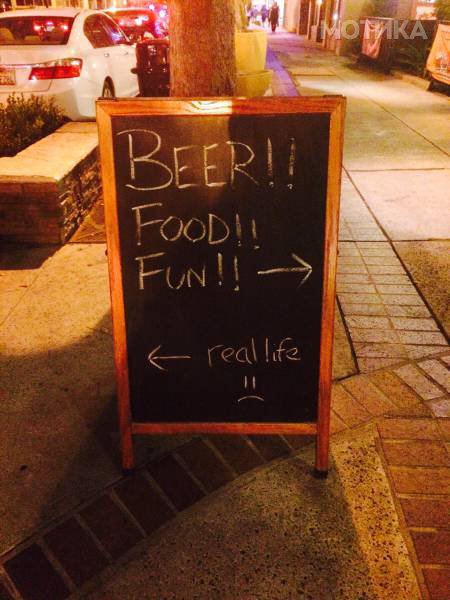 MOTИKA
BEER!!
FOOD!!
FUN!! →
← real life